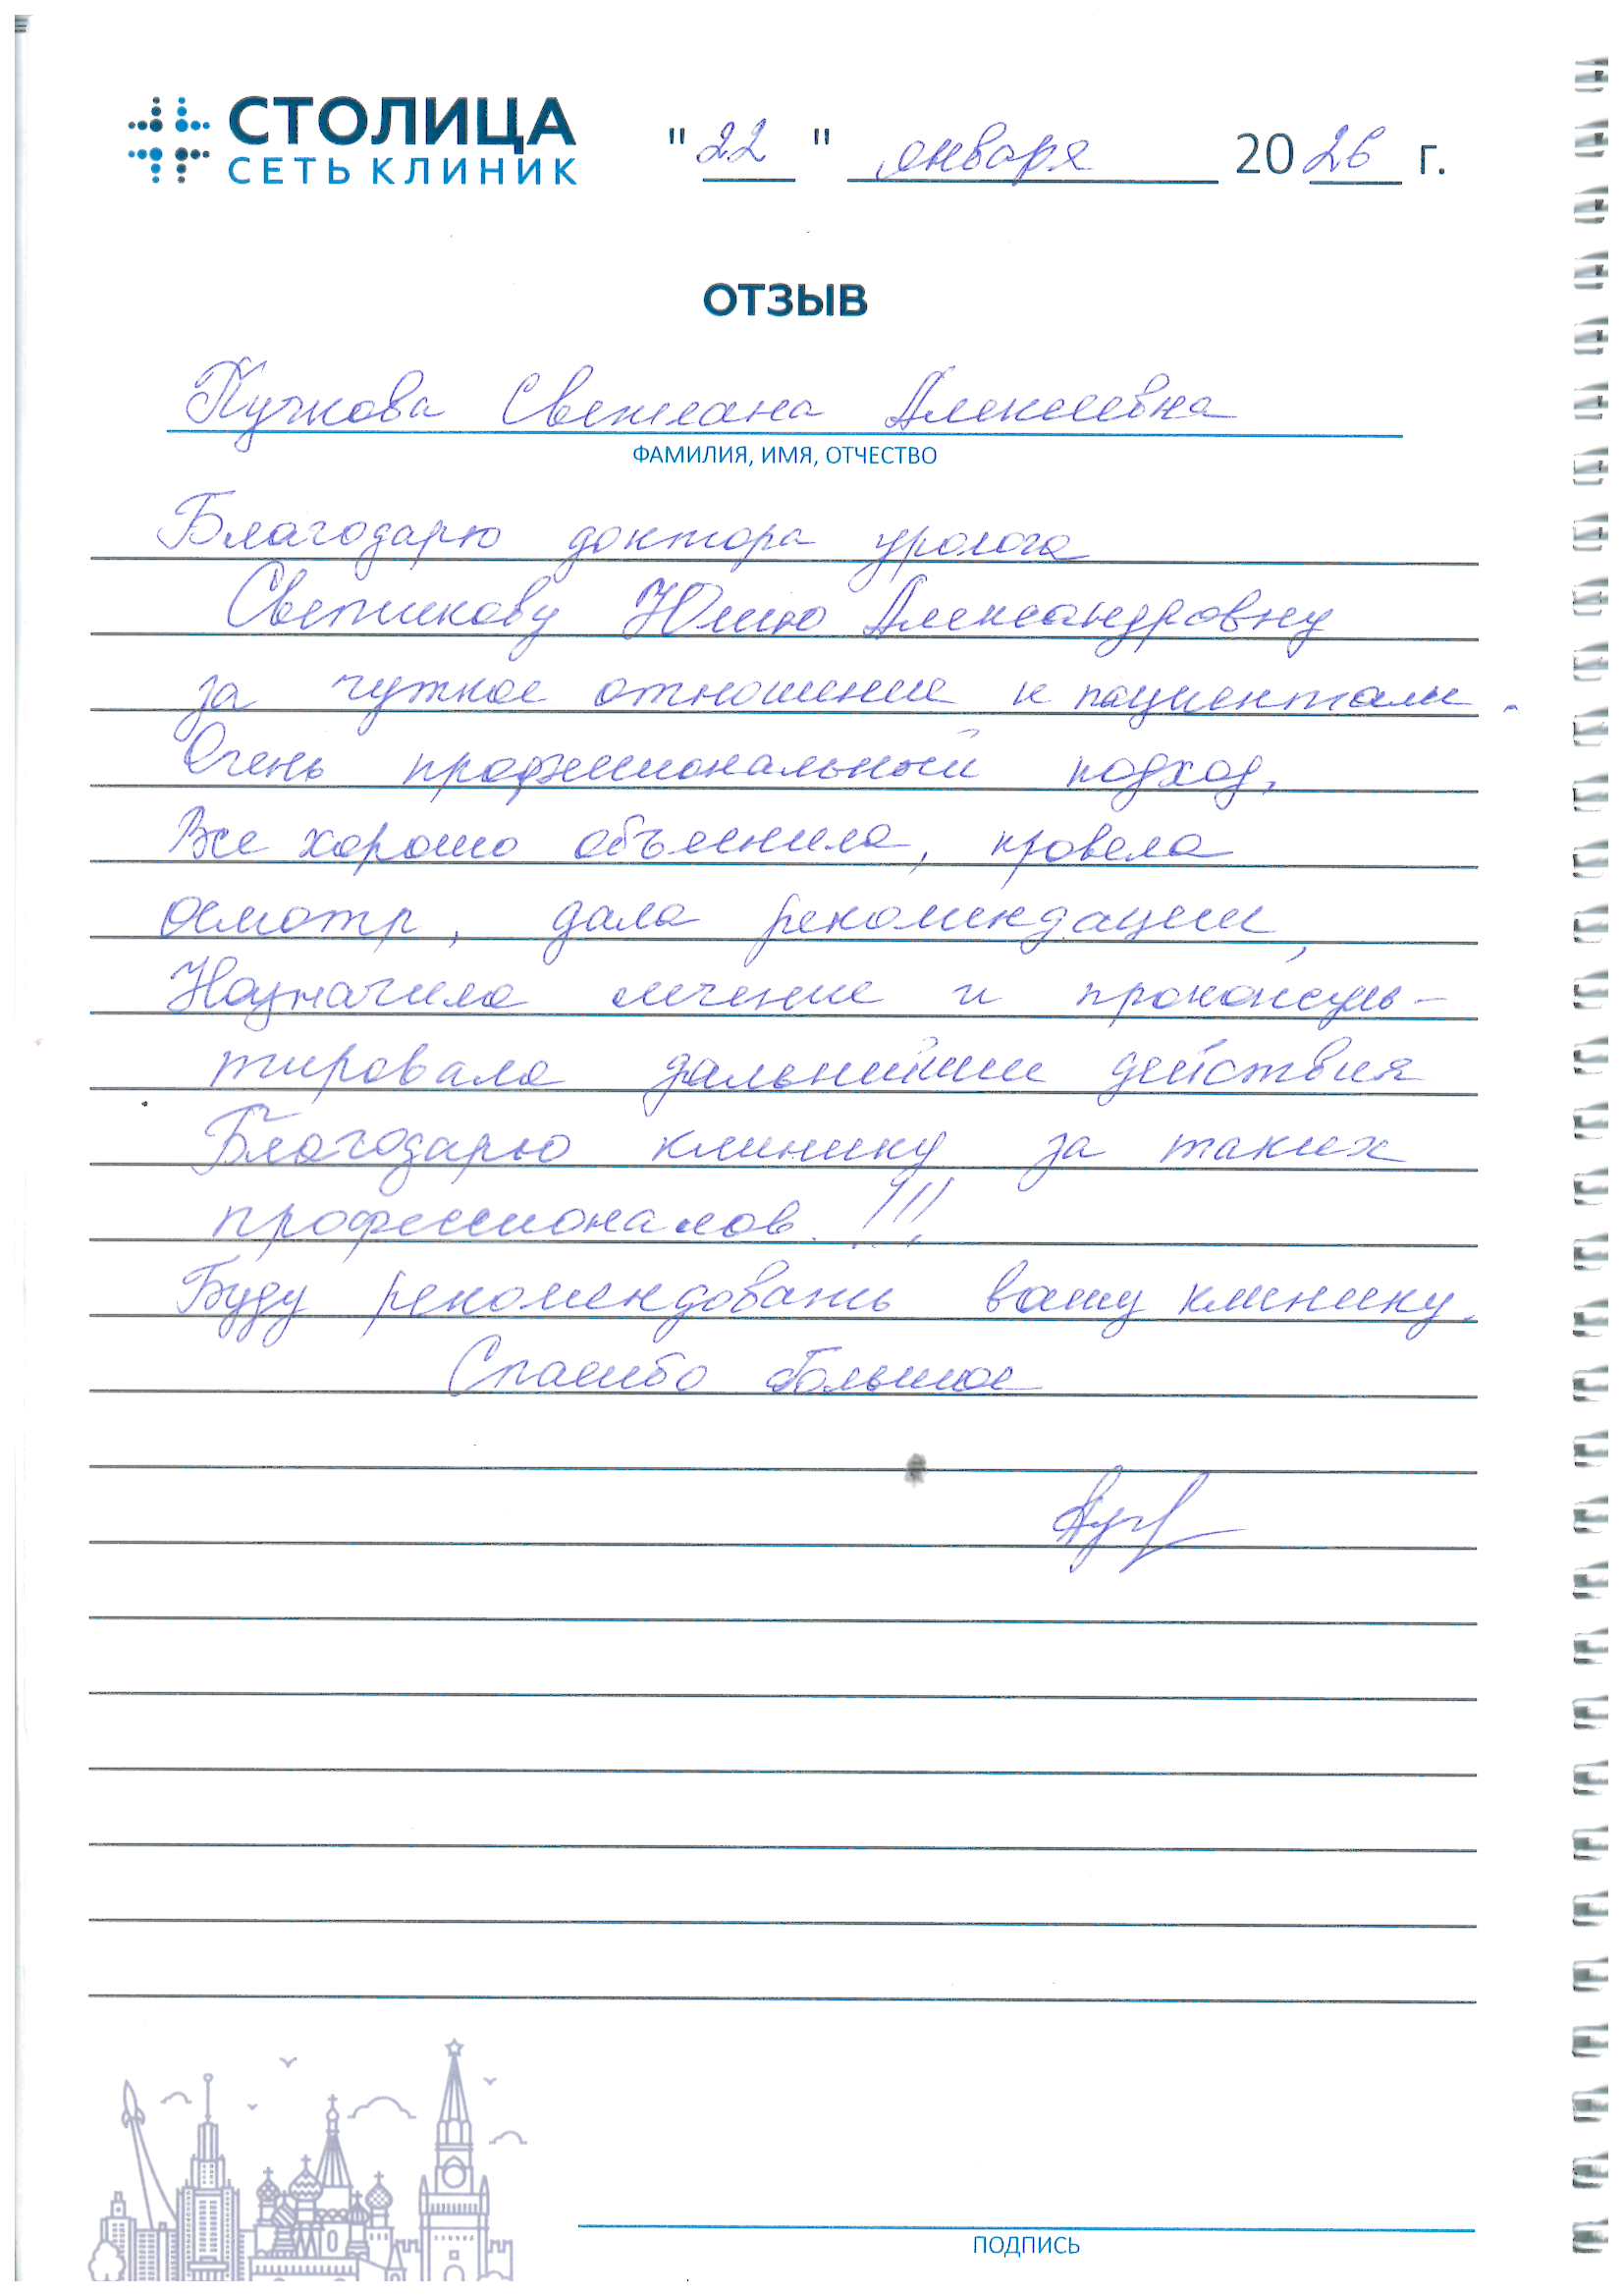 СТОЛИЦА
СЕТЬ КЛИНИК
"22" января 2026 г.
ОТЗЫВ
Пучкова Светлана Алексеевна
ФАМИЛИЯ, ИМЯ, ОТЧЕСТВО
Благодарю доктора уролога
Светикову Юлию Александровну
за чуткое отношение к пациентам.
Очень профессиональный подход,
Все хорошо объяснила, провела
осмотр, дала рекомендации,
Назначила лечение и проконсуль-
тировала дальнейшие действия
Благодарю клинику за таких
профессионалов. !!!
Буду рекомендовать вашу клинику.
Спасибо большое
ПОДПИСЬ